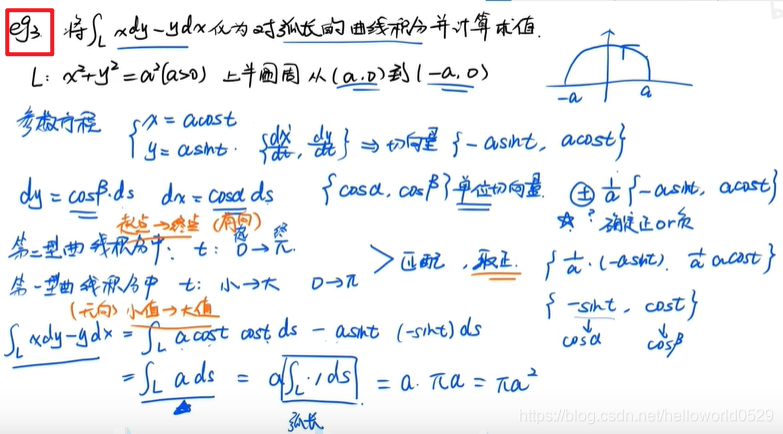 eg3 将∫_L xdy-ydx 化为对弧长的曲线积分并计算求值.
L: x²+y²=a²(a>0) 上半圆周 从(a.0)到(-a,0)
-a a
参数方程 { x=acost
y=asint. {dx/dt, dy/dt} ⇒ 切向量 {-asint, acost}
dy=cosβ.ds dx=cosα ds {cosα, cosβ}单位切向量. ± 1/a {-asint, acost}
起点→终点 (有向) ☆? 确定正or负
第二型曲线积分中. t: 0→π. 起 终
> 匹配, 取正. {1/a·(-asint). 1/a acost}
第一型曲线积分中 t: 小→大 0→π
(无向) 小值→大值 {-sint, cost}
↓cosα ↓cosβ
∫_L xdy-ydx = ∫_L acost cost ds - asint (-sint) ds
= ∫_L a ds = a ∫_L ·1 ds = a·πa = πa²
弧长
https://blog.csdn.net/helloworld0529